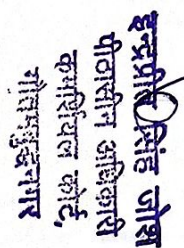 इन्द्रप्रीत सिंह जोश
पीठासीन अधिकारी
कमर्शियल कोर्ट,
गौतमबुद्धनगर